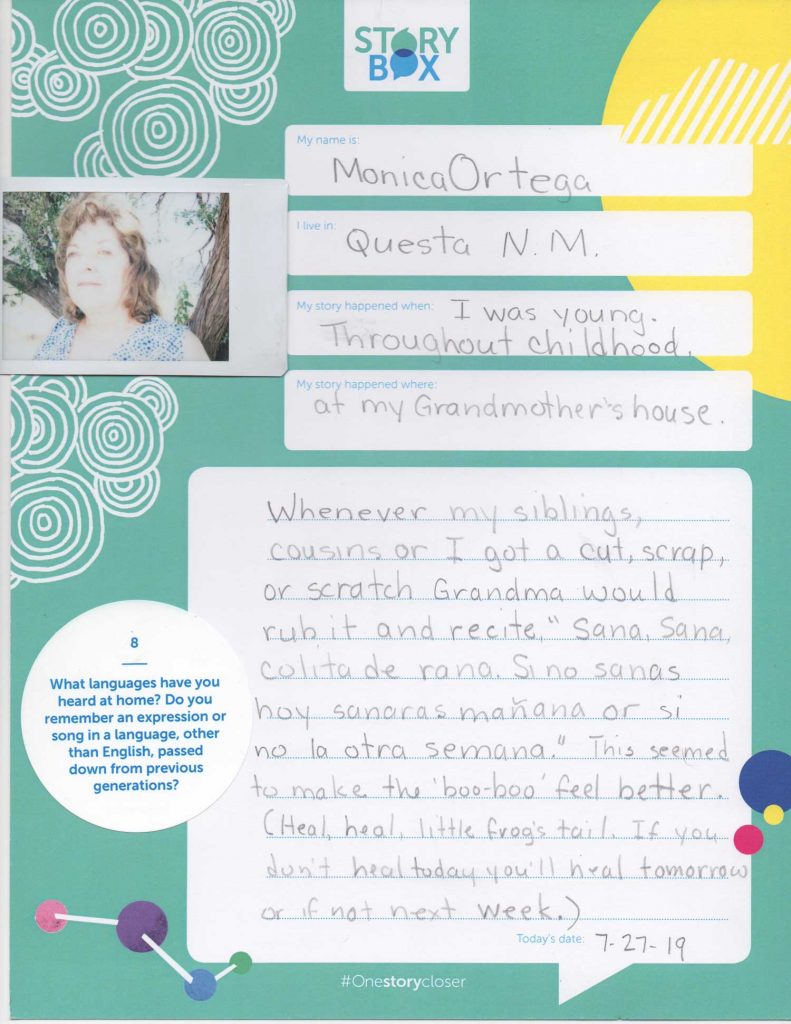 STORY
BOX
My name is:
Monica Ortega
I live in:
Questa N.M.
My story happened when: I was young.
Throughout childhood.
My story happened where:
at my Grandmother's house.
Whenever my siblings,
cousins or I got a cut, scrap,
or scratch Grandma would
rub it and recite, "Sana, Sana,
colita de rana. Si no sanas
hoy sanaras mañana or si
no la otra semana." This seemed
to make the 'boo-boo' feel better.
(Heal, heal, little frog's tail. If you
don't heal today you'll heal tomorrow
or if not next week.)
Today's date: 7-27-19
8
What languages have you
heard at home? Do you
remember an expression or
song in a language, other
than English, passed
down from previous
generations?
#Onestorycloser